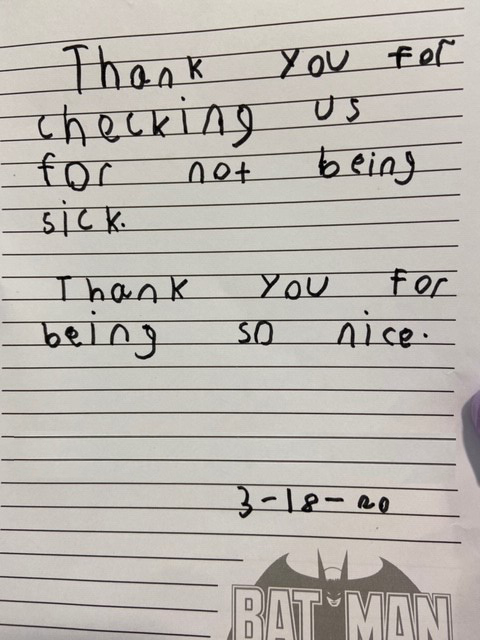 Thank you for
checking us
for not being
sick.
Thank you for
being so nice.
3-18-20
BATMAN